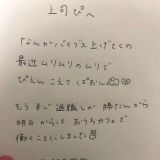 上司ぴへ
「なんかバイブス上げてくの
最近ムリムリのムリで
ぴえんこえてぱおん🥺🐘
もうまじ退職しか勝たんから
明日からはおうちカフェで
働くことにしました🥺